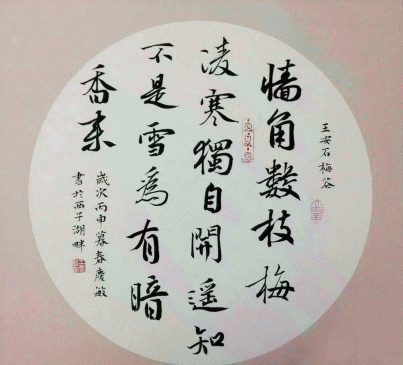 王安石梅花
墙角數枝梅
凌寒獨自開遥知
不是雪為有暗
香来
歲次丙申暮春慶敏
書於西子湖畔